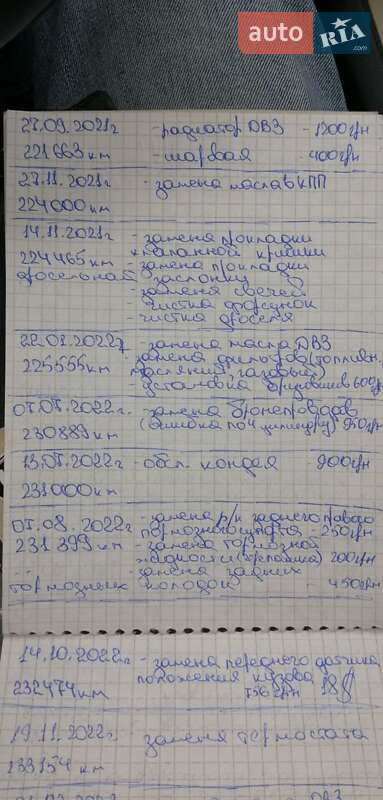 auto RIA.com
27.09.2021г - радиатор ДВЗ - 1200грн
221663км - шаровая 400грн
27.11.2021г - замена масла в КПП
224000км
14.11.2021г - замена прокладки
клапанной крышки
224465км - замена прокладки
дросельной заслонки
- замена свечей
- чистка форсунок
- чистка дроселя
- замена масла ДВЗ
замена фильтров (топливн.
225555км масляний газовый)
- установка 600грн
2022г. - замена бронепроводов
230889км (ошибка по 4 цилиндру) 950грн
2022г - обсл. кондея - 900грн
231000км
08.2022г - замена р/к заднего правого
тормозного супорта - 250грн
231399км - замена тормозной
жидкости 200грн
замена задних
тормозных колодок 450грн
14.10.2022г. - замена переднего датчика
положения кузова
232474км 756грн 18$
19.11.2022г. - замена термостата
233154км